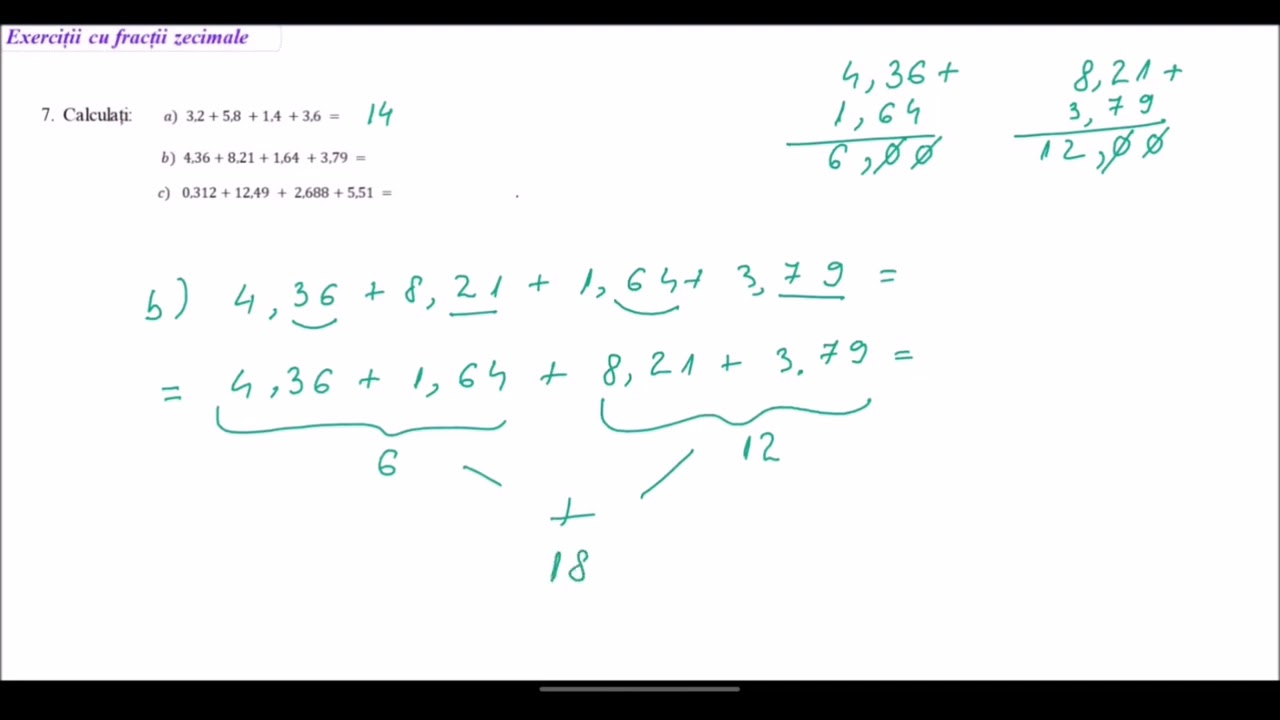 Exerciții cu fracții zecimale
7. Calculați: a) 3,2 + 5,8 + 1,4 + 3,6 = 14
b) 4,36 + 8,21 + 1,64 + 3,79 =
c) 0,312 + 12,49 + 2,688 + 5,51 =
4,36 +
1,64
6,00
8,21 +
3,79
12,00
b) 4,36 + 8,21 + 1,64 + 3,79 =
= 4,36 + 1,64 + 8,21 + 3.79 =
6 12
+
18